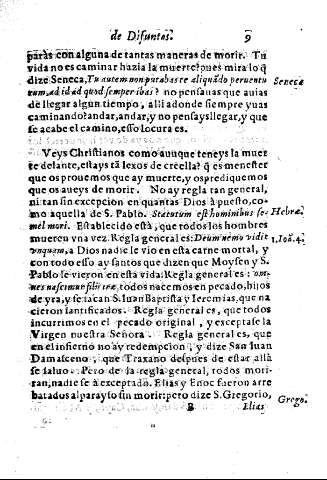 de Difuntos. 9
paràs con alguna de tantas maneras de morir. Tu
vida no es caminar hazia la muerte? pues mira lo q̃
dize Seneca, Tu autem non putabas te aliquãdo peruentu Seneca
tum, ad id ad quod semper ibas? no pensauas que auias
de llegar algun tiempo, alli adonde siempre yuas
caminando? andar, andar, y no pensays llegar, y que
se acabe el camino, esso locura es.
Veys Christianos como aunque teneys la muer
te delante, estays tã lexos de creella? q̃ es menester
que os prouemos que ay muerte, y os prediquemos
que os aueys de morir. No ay regla tan general,
ni tan sin excepcion en quantas Dios à puesto, co-
mo aquella de S. Pablo. Statutum est hominibus se- Hebræ.
mel mori. Establecido està, que todos los hombres
mueren vna vez. Regla general es: Deum nemo vidit 1. Ioã. 4.
vnquam, a Dios nadie le vio en esta carne mortal, y
con todo esso ay santos que dizen que Moysen y S.
Pablo se vieron en esta vida. Regla general es: om-
nes nascimur filii iræ, todos nacemos en pecado, hijos
de yra, y se sacan S. Iuan Baptista y Ieremias, que na
cieron santificados. Regla general es, que todos
incurrimos en el pecado original, y exceptase la
Virgen nuestra Señora. Regla general es, que
en el infierno no ay redempcion, y dize San Iuan
Damasceno, que Traxano despues de estar allà
se saluo. Pero de la regla general, todos mori-
ran, nadie se à exceptado. Elias y Enoc fueron arre
batados al parayso sin morir: pero dize S. Gregorio, Grego.
B Elias